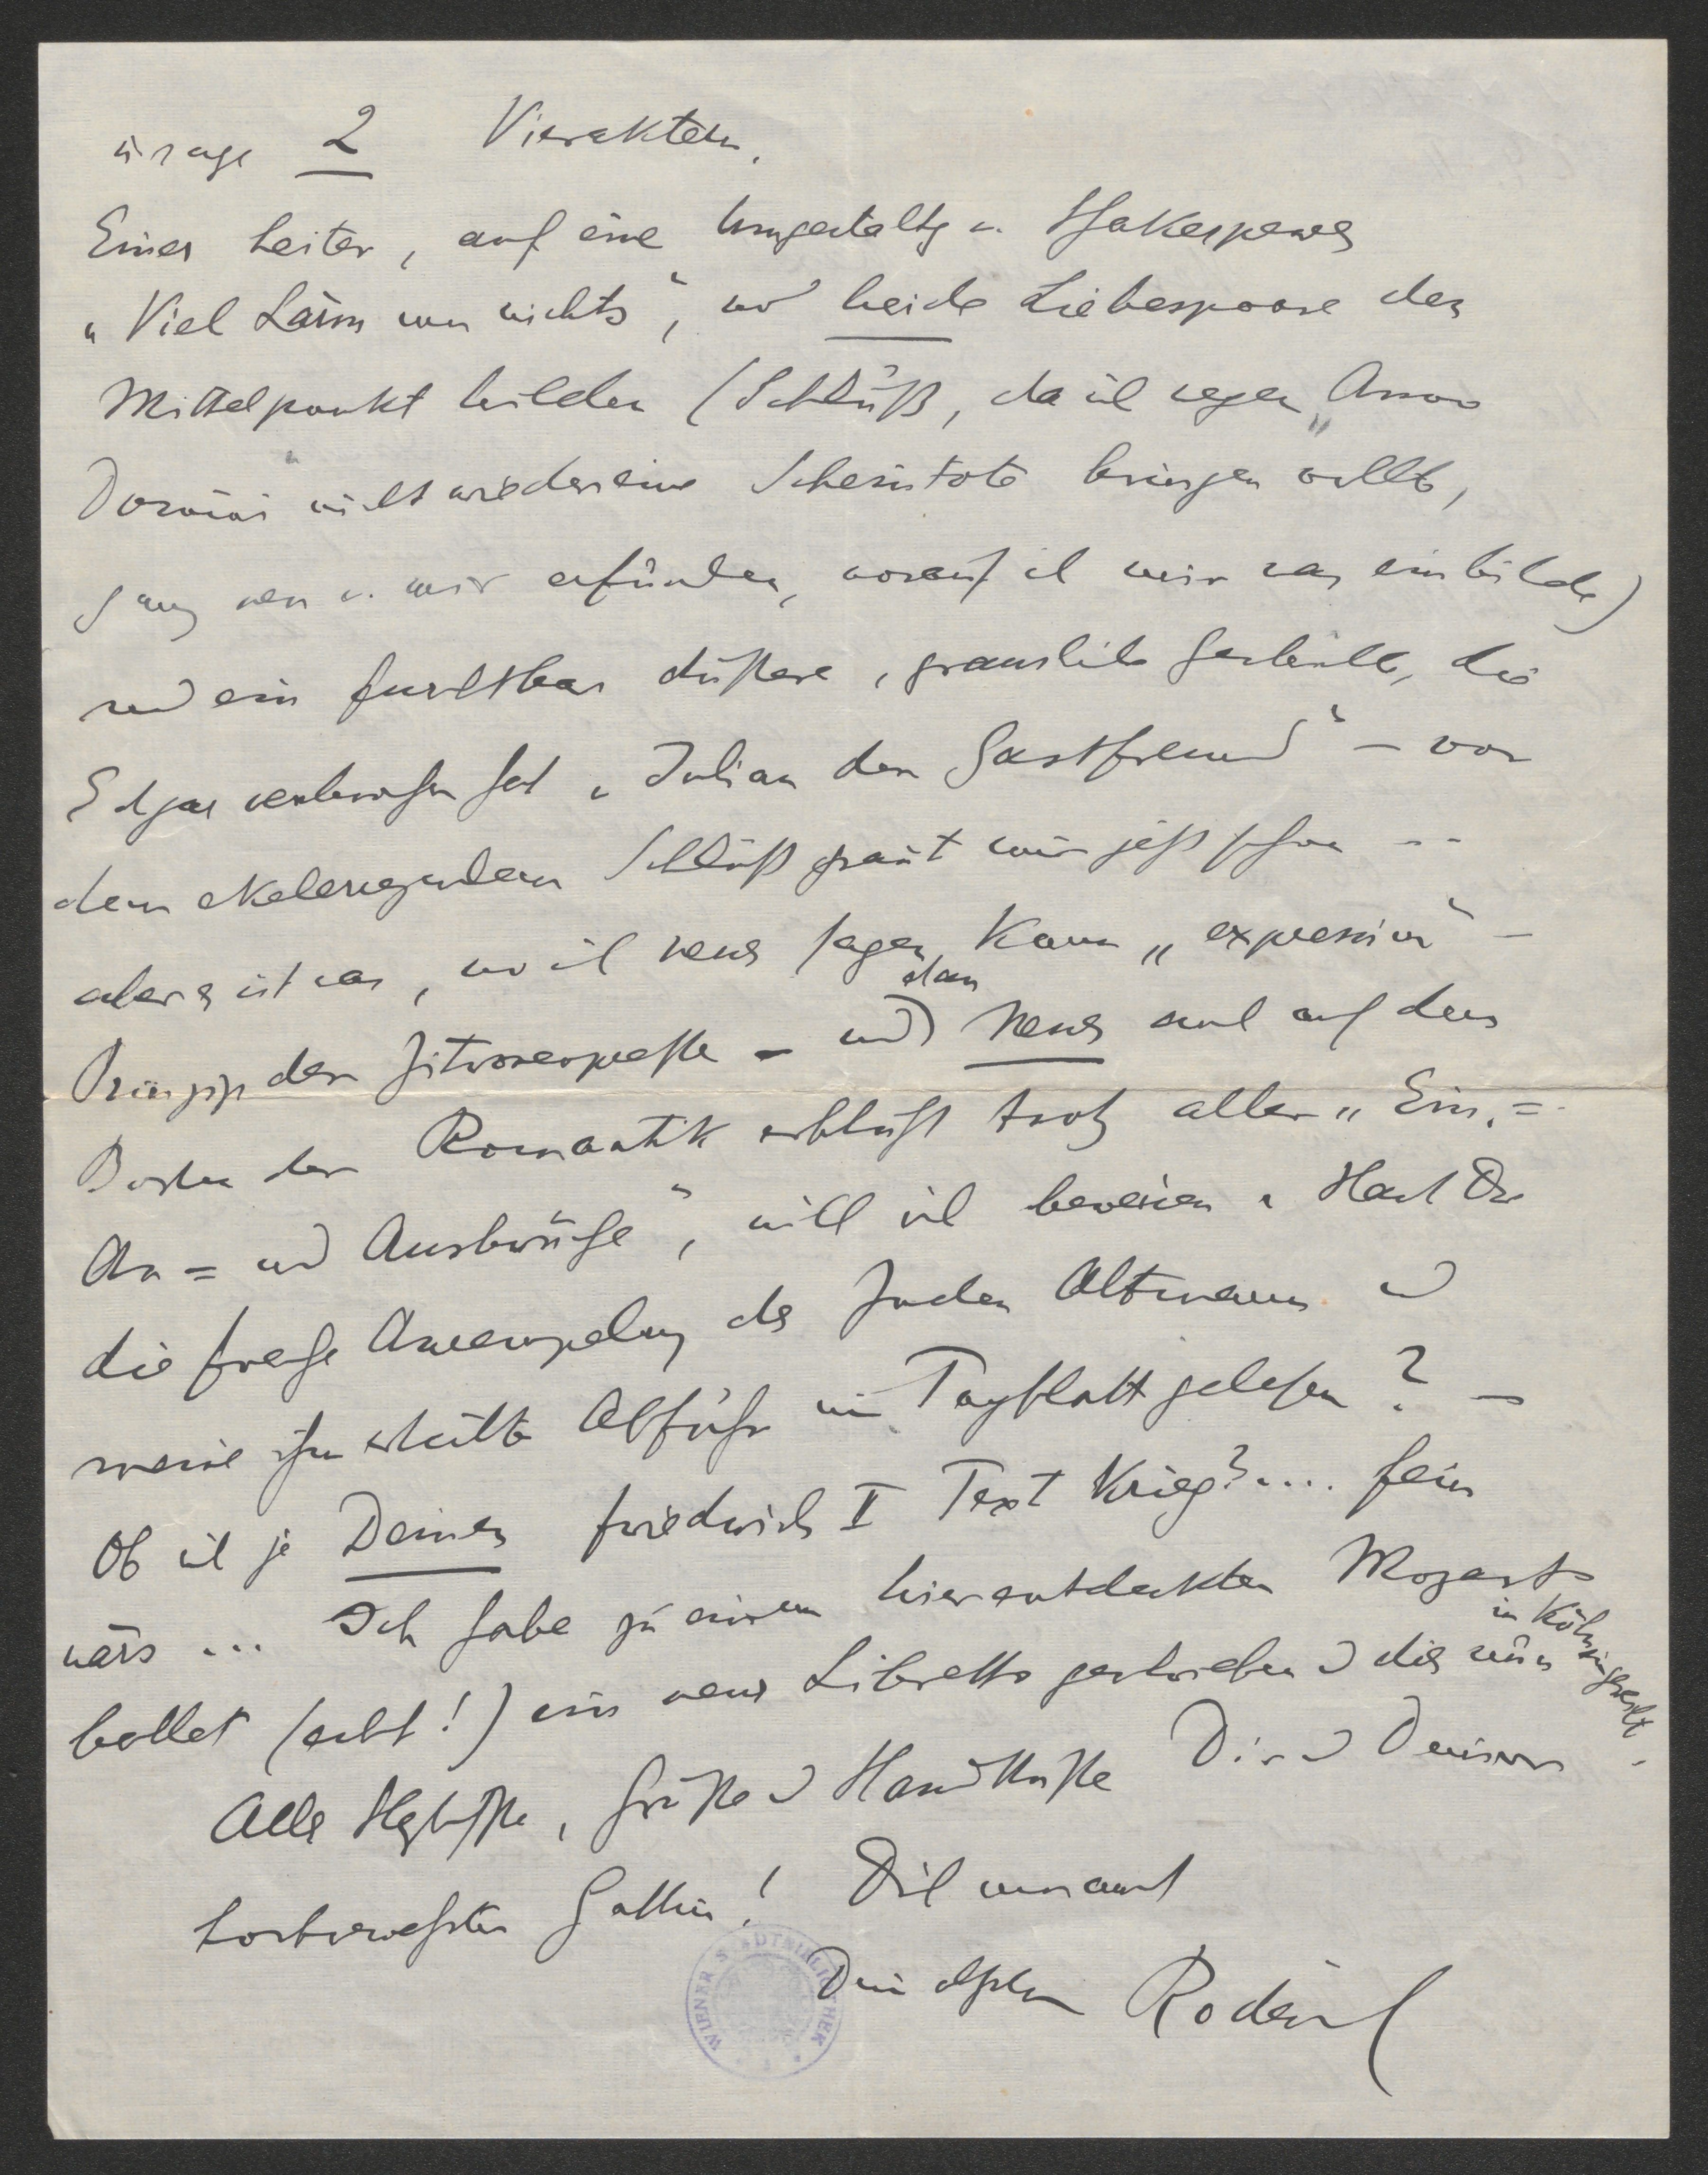 u. zwar 2 Vierakter.
Einer heiter, auf eine Umgestaltg v. Shakespeares
„Viel Lärm um nichts“, wo beide Liebespaare den
Mittelpunkt bilden (Schluß, da ich wegen „Amor
Dornröi“ nicht wieder eine Scheintote bringen wollte,
ganz neu v. mir erfunden, worauf ich mir was einbilde)
und ein furchtbar düstere, grausliche Geschichte, die
Edgar verbrochen hat „Julian der Gastfreund“ – vor
dem ekelerregenden Schluß graut mir jetzt schon --
aber es ist was, wo ich neues sagen kann „expressiv“ –
Prinzip der Zitronenpresse – und dass Neues auch auf dem
Boden der Romantik erblüht trotz aller „Ein=
An= und Ausbrüche“, will ich beweisen. Hast Du
die freche Anrempelung des Juden Altmann u
meine ihm erteilte Abfuhr im Tagblatt gelesen? –
Ob ich je Deinen Friedrich II Text krieg? .... fein
wärs ... Ich habe zu einem hier entdeckten Mozart
ballet (echt!) ein neues Libretto geschrieben u dies nun in Köln eingereicht.
Alles Herzlichste, Grüße u Handküsse Dir u Deiner
hochverehrten Gattin! Dich umarmt
Dein alter Roderich
WIENER STADTBIBLIOTHEK